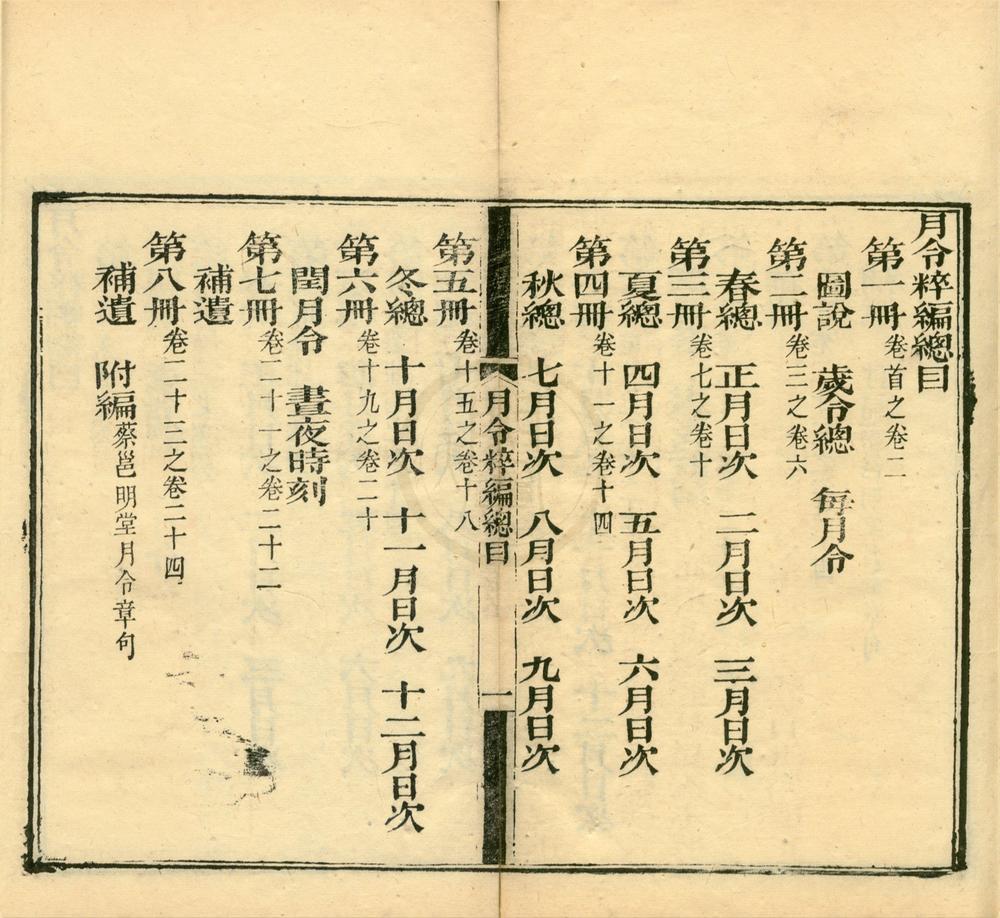 月令粹編總目
第一冊卷首之卷二
圖說 歲令總 每月令
第二冊卷三之卷六
春總 正月日次 二月日次 三月日次
第三冊卷七之卷十
夏總 四月日次 五月日次 六月日次
第四冊卷十一之卷十四
秋總 七月日次 八月日次 九月日次
月令粹編總目 一
第五冊卷十五之卷十八
冬總 十月日次 十一月日次 十二月日次
第六冊卷十九之卷二十
閏月令 晝夜時刻
第七冊卷二十一之卷二十二
補遺
第八冊卷二十三之卷二十四
補遺 附編蔡邕明堂月令章句